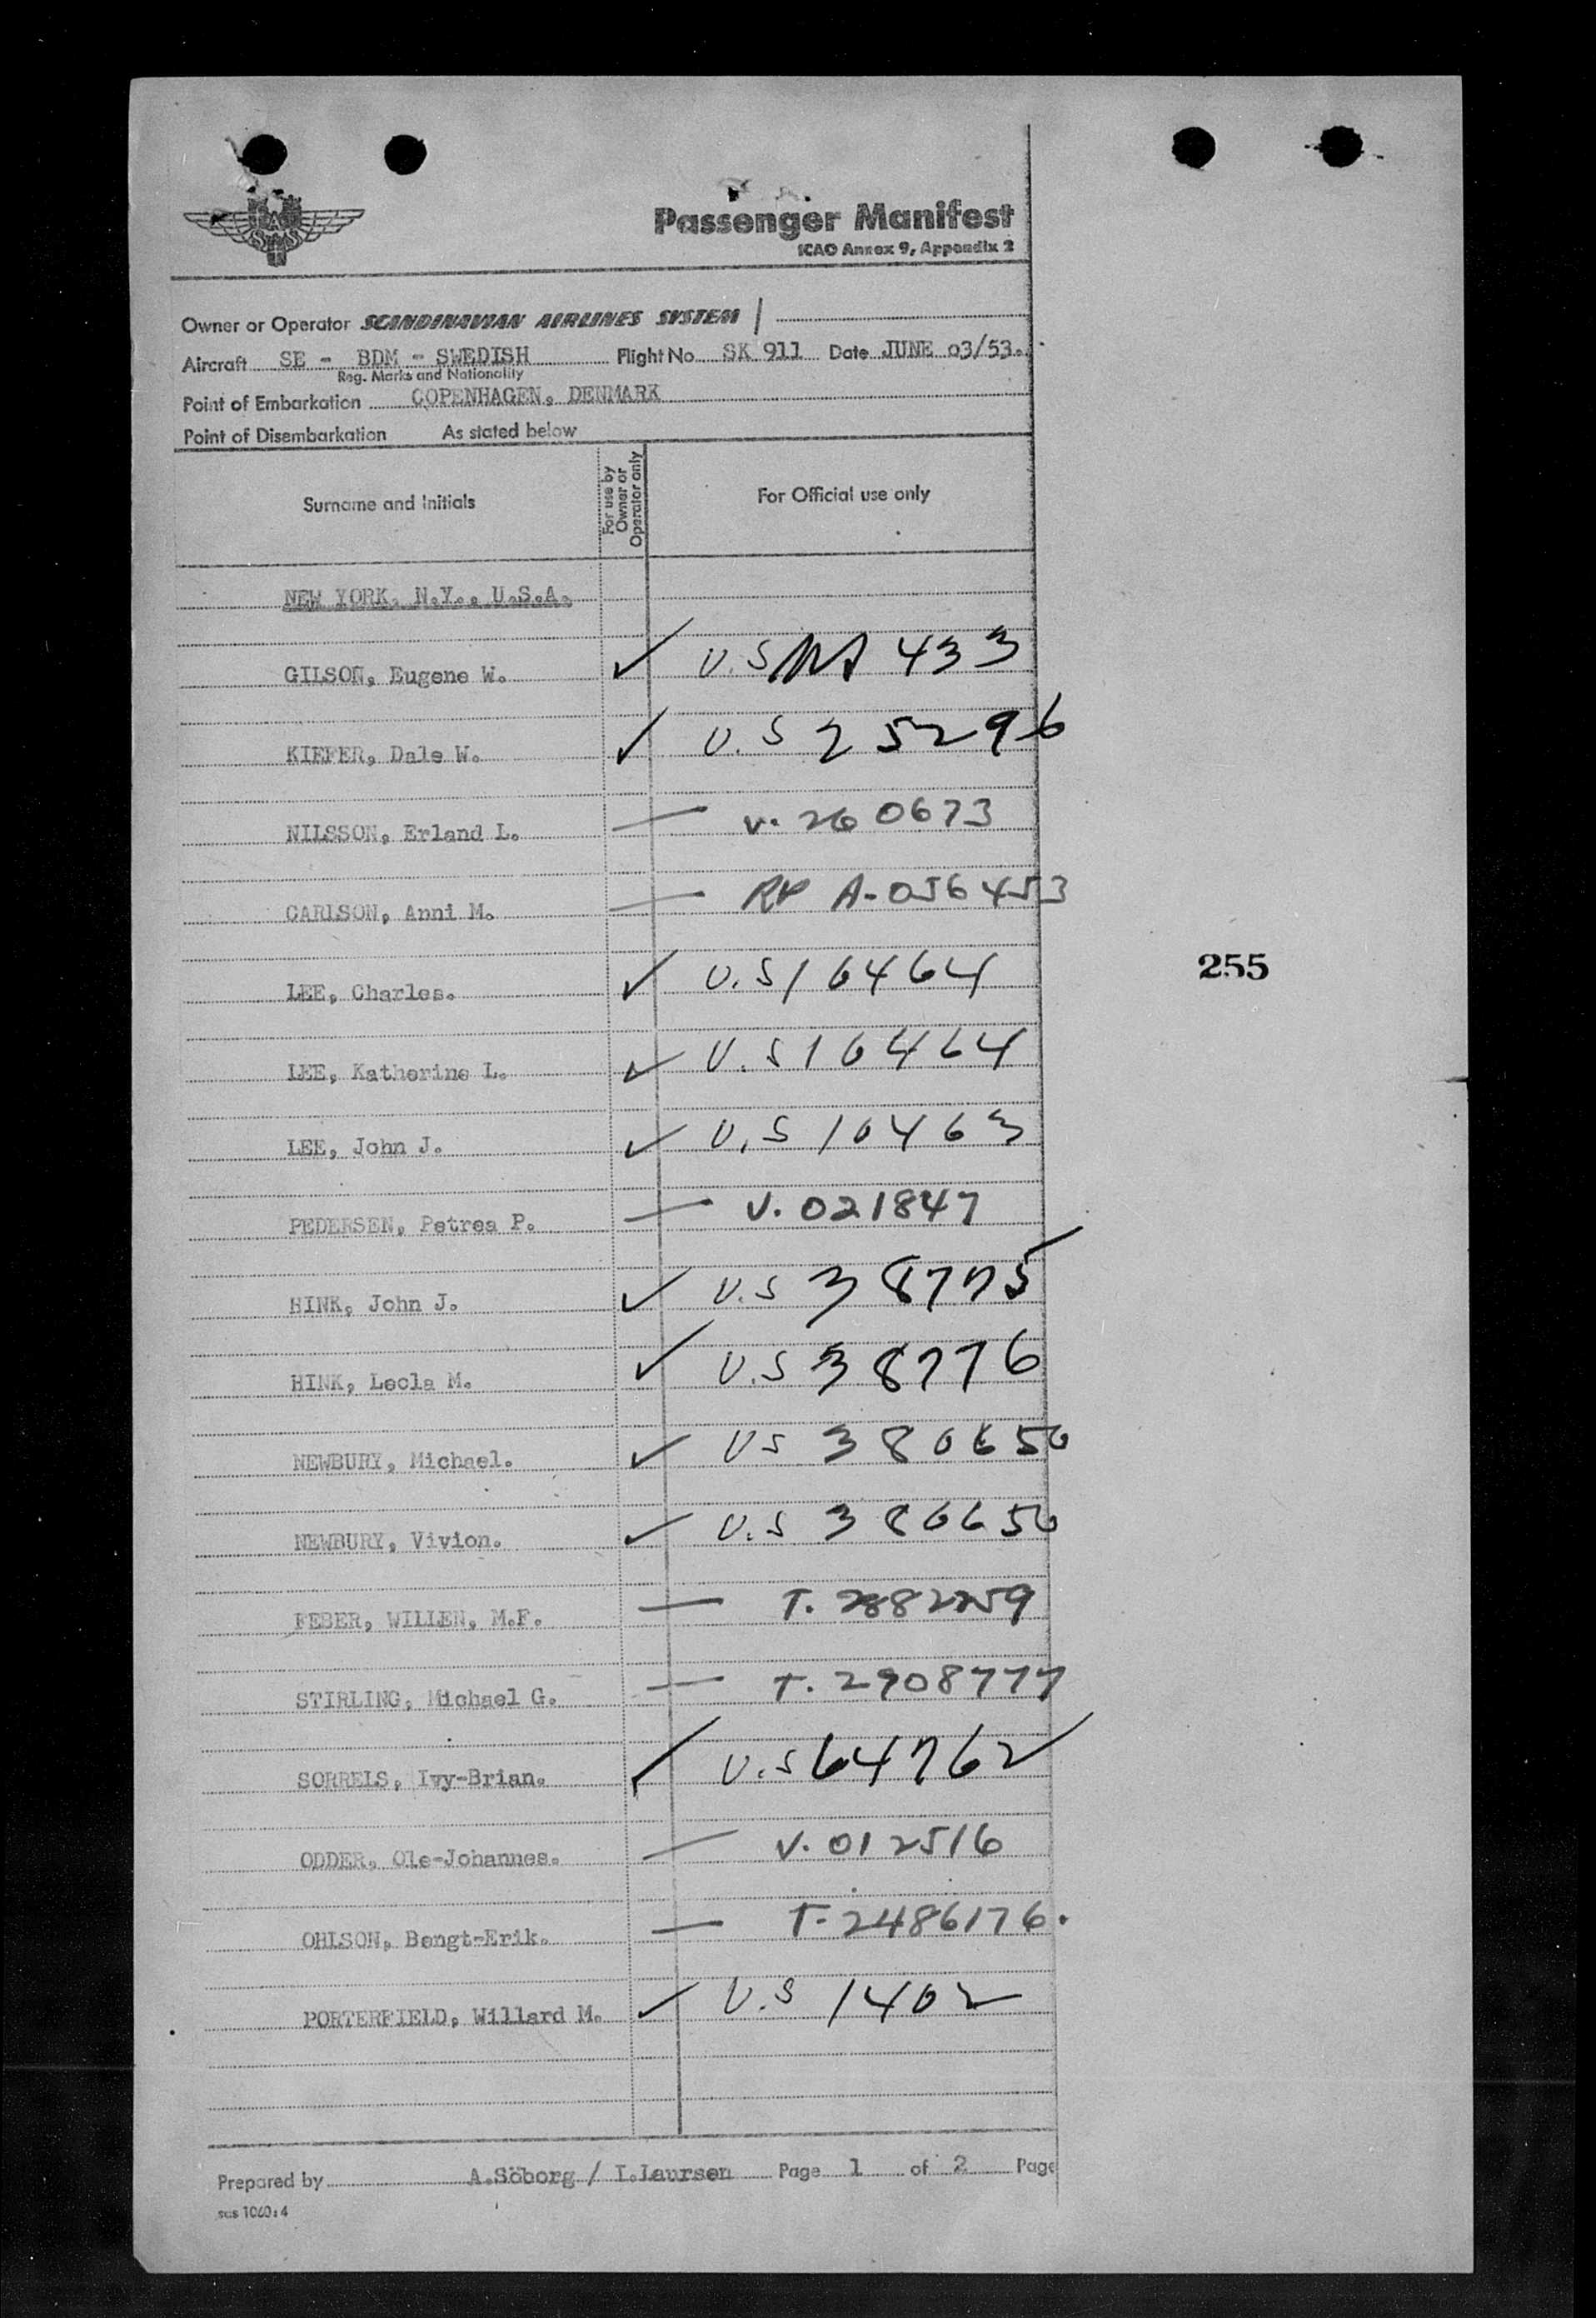 SAS
Passenger Manifest
ICAO Annex 9, Appendix 2
Owner or Operator SCANDINAVIAN AIRLINES SYSTEM /
Aircraft SE - BDM - SWEDISH Flight No SK 911 Date JUNE 03/53.
Reg. Marks and Nationality
Point of Embarkation COPENHAGEN, DENMARK
Point of Disembarkation As stated below
Surname and Initials For use by Owner or Operator only For Official use only
NEW YORK, N.Y., U.S.A.
GILSON, Eugene W. ✓ U.S 433
KIEFER, Dale W. ✓ U.S 25296
NILSSON, Erland L. — V. 260673
CARLSON, Anni M. — RP A-056453
LEE, Charles. ✓ U.S 16464
255
LEE, Katherine L. ✓ U.S 16464
LEE, John J. ✓ U.S 16463
PEDERSEN, Petrea P. — V. 021847
HINK, John J. ✓ U.S 38775
HINK, Leola M. ✓ U.S 38776
NEWBURY, Michael. ✓ US 380650
NEWBURY, Vivion. ✓ U.S
FEBER, WILLEN, M.F. — T.
STIRLING, Michael G. — T. 2908777
SORRELS, Ivy-Brian. ✓ U.S 64762
ODDER, Ole-Johannes. — V. 012516
OHLSON, Bengt-Erik. — T- 2486176.
PORTERFIELD, Willard M. ✓ U.S 1402
Prepared by A.Söborg / I.Laursen Page 1 of 2 Page
sas 1060:4